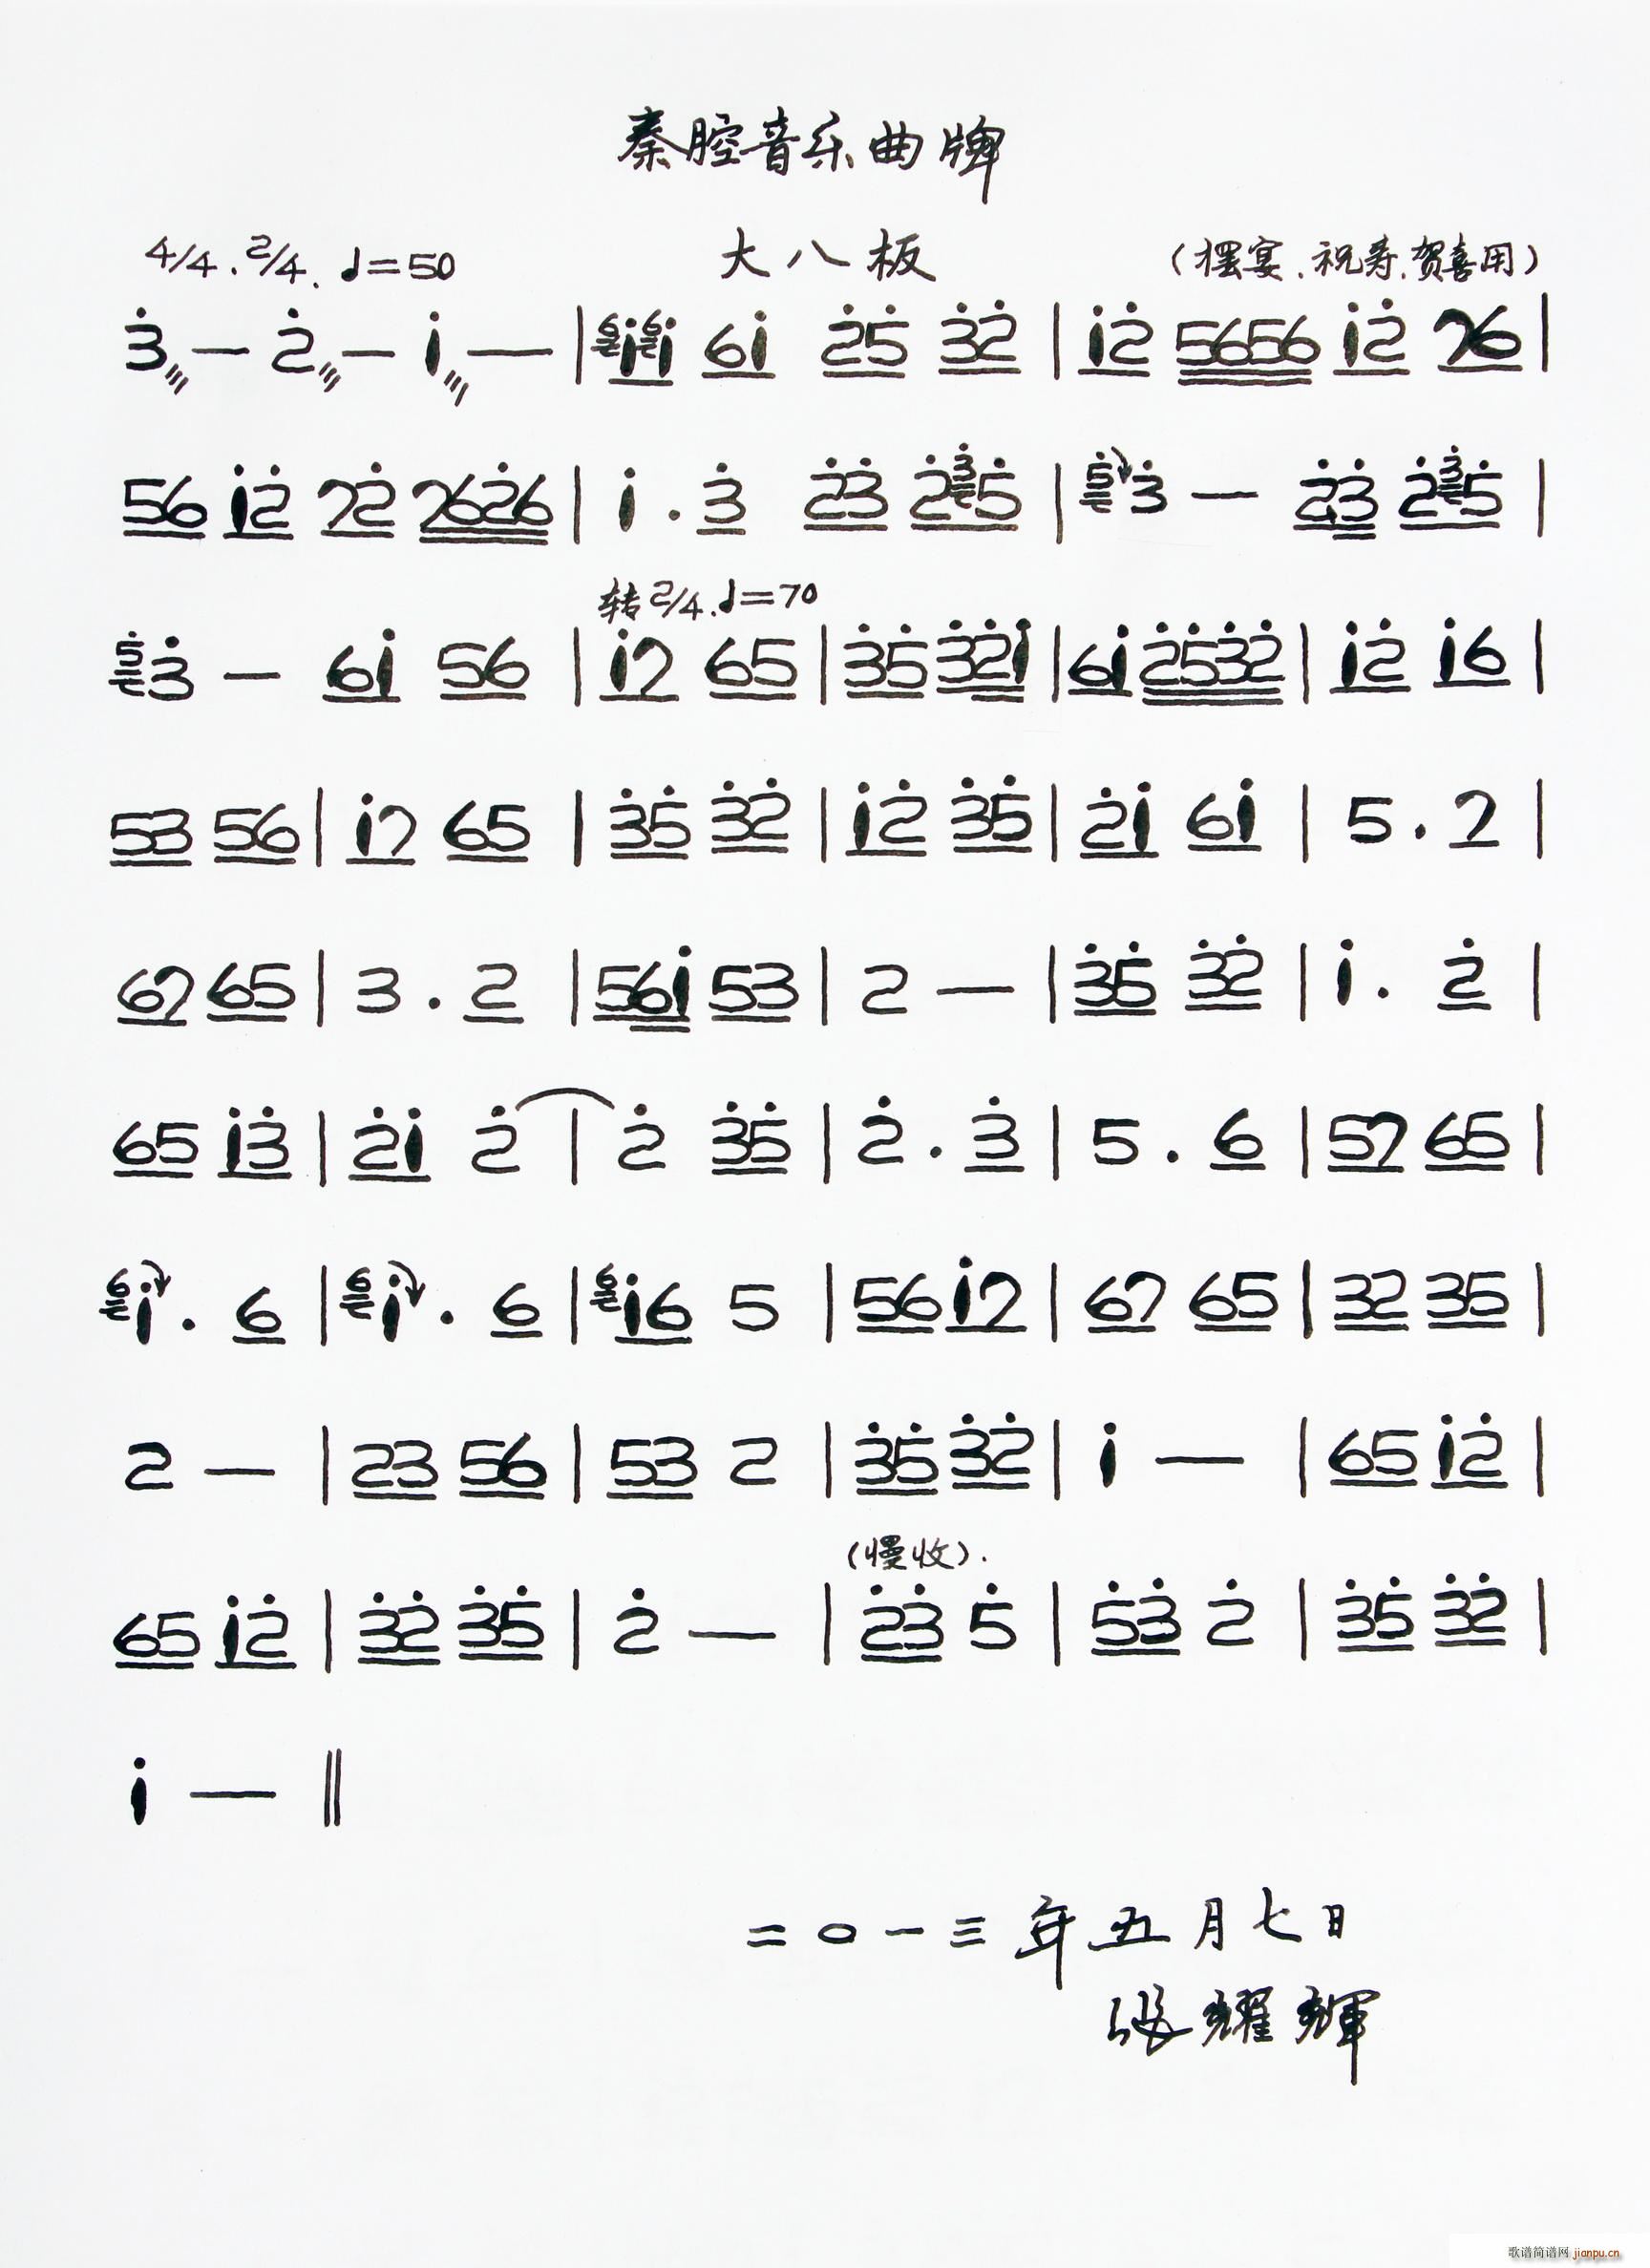 秦腔音乐曲牌
4/4.2/4.♩=50 大八板 (摆宴.祝寿.贺喜用)
3̇ — 2̇ — 1̇ — | 6 1̇ 6 1̇ 6 1̇ 2̇ 5̇ 3̇ 2̇ | 1̇ 2̇ 5 6 5 6 1̇ 2̇ 7 6 |
5 6 1̇ 2̇ 7 2̇ 7 6 2̇ 6 | 1̇ . 3̇ 2̇ 3̇ 2̇ 3̇ 5̇ | 5̇ 3̇ — 2̇ 3̇ 2̇ 3̇ 5̇ |
转2/4.♩=70
5̇ 3̇ — 6 1̇ 5 6 | 1̇ 7 6 5 | 3̇ 5̇ 3̇ 2̇ 1̇ | 6 1̇ 2̇ 5̇ 3̇ 2̇ | 1̇ 2̇ 1̇ 6 |
5 3 5 6 | 1̇ 7 6 5 | 3̇ 5̇ 3̇ 2̇ | 1̇ 2̇ 3̇ 5̇ | 2̇ 1̇ 6 1̇ | 5 . 7 |
6 7 6 5 | 3 . 2 | 5 6 1̇ 5 3 | 2 — | 3̇ 5̇ 3̇ 2̇ | 1̇ . 2̇ |
6 5 1̇ 3̇ | 2̇ 1̇ 2̇ | 2̇ 3̇ 5̇ | 2̇ . 3̇ | 5 . 6 | 5 7 6 5 |
6 1̇ . 6 | 6 1̇ . 6 | 6 1̇ 6 5 | 5 6 1̇ 7 | 6 7 6 5 | 3 2 3 5 |
2 — | 2 3 5 6 | 5 3 2 | 3̇ 5̇ 3̇ 2̇ | 1̇ — | 6 5 1̇ 2̇ |
(慢收).
6 5 1̇ 2̇ | 3̇ 2̇ 3̇ 5̇ | 2̇ — | 2̇ 3̇ 5̇ | 5̇ 3̇ 2̇ | 3̇ 5̇ 3̇ 2̇ |
1̇ — ‖
二〇一三年五月七日
张耀輝
歌谱简谱网 jianpu.cn